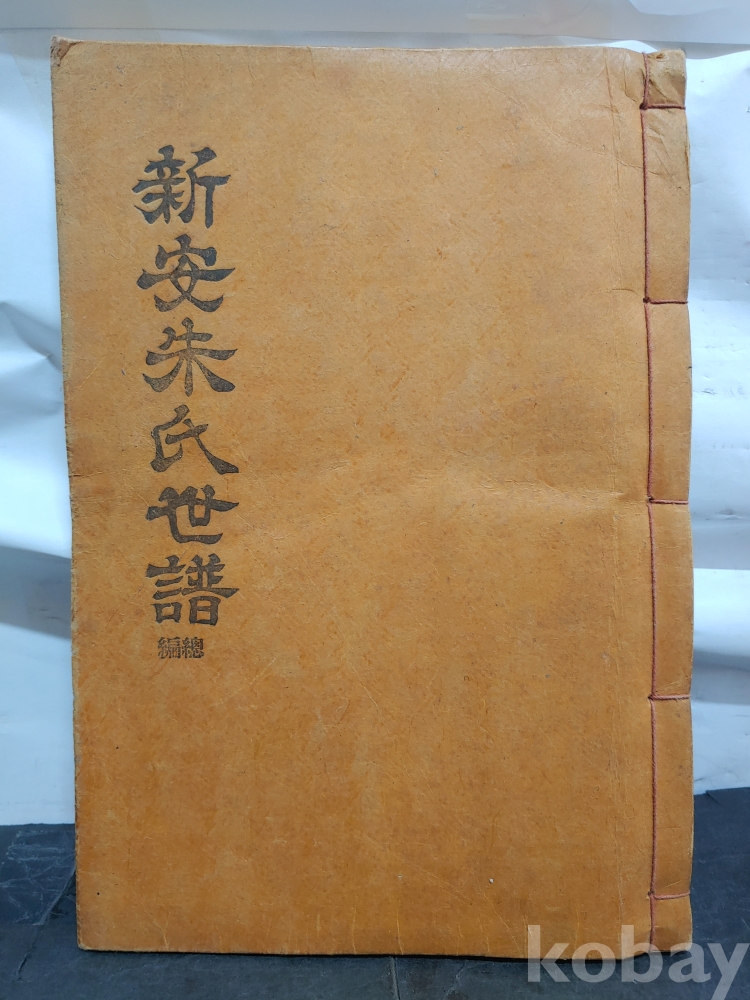 新安朱氏世譜
總編
kobay